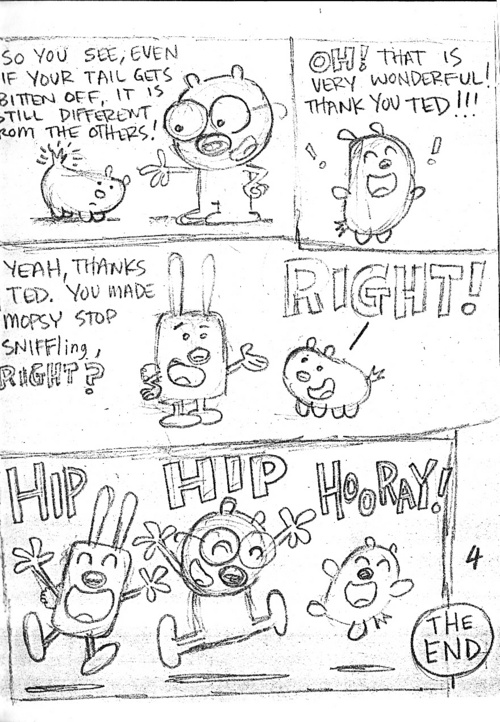 SO YOU SEE, EVEN
IF YOUR TAIL GETS
BITTEN OFF, IT IS
STILL DIFFERENT,
FROM THE OTHERS!
OH! THAT IS
VERY WONDERFUL!
THANK YOU TED!!!
! !
YEAH, THANKS
TED. YOU MADE
MOPSY STOP
SNIFFling,
RIGHT?
RIGHT!
HIP HIP HOORAY!
4
THE
END